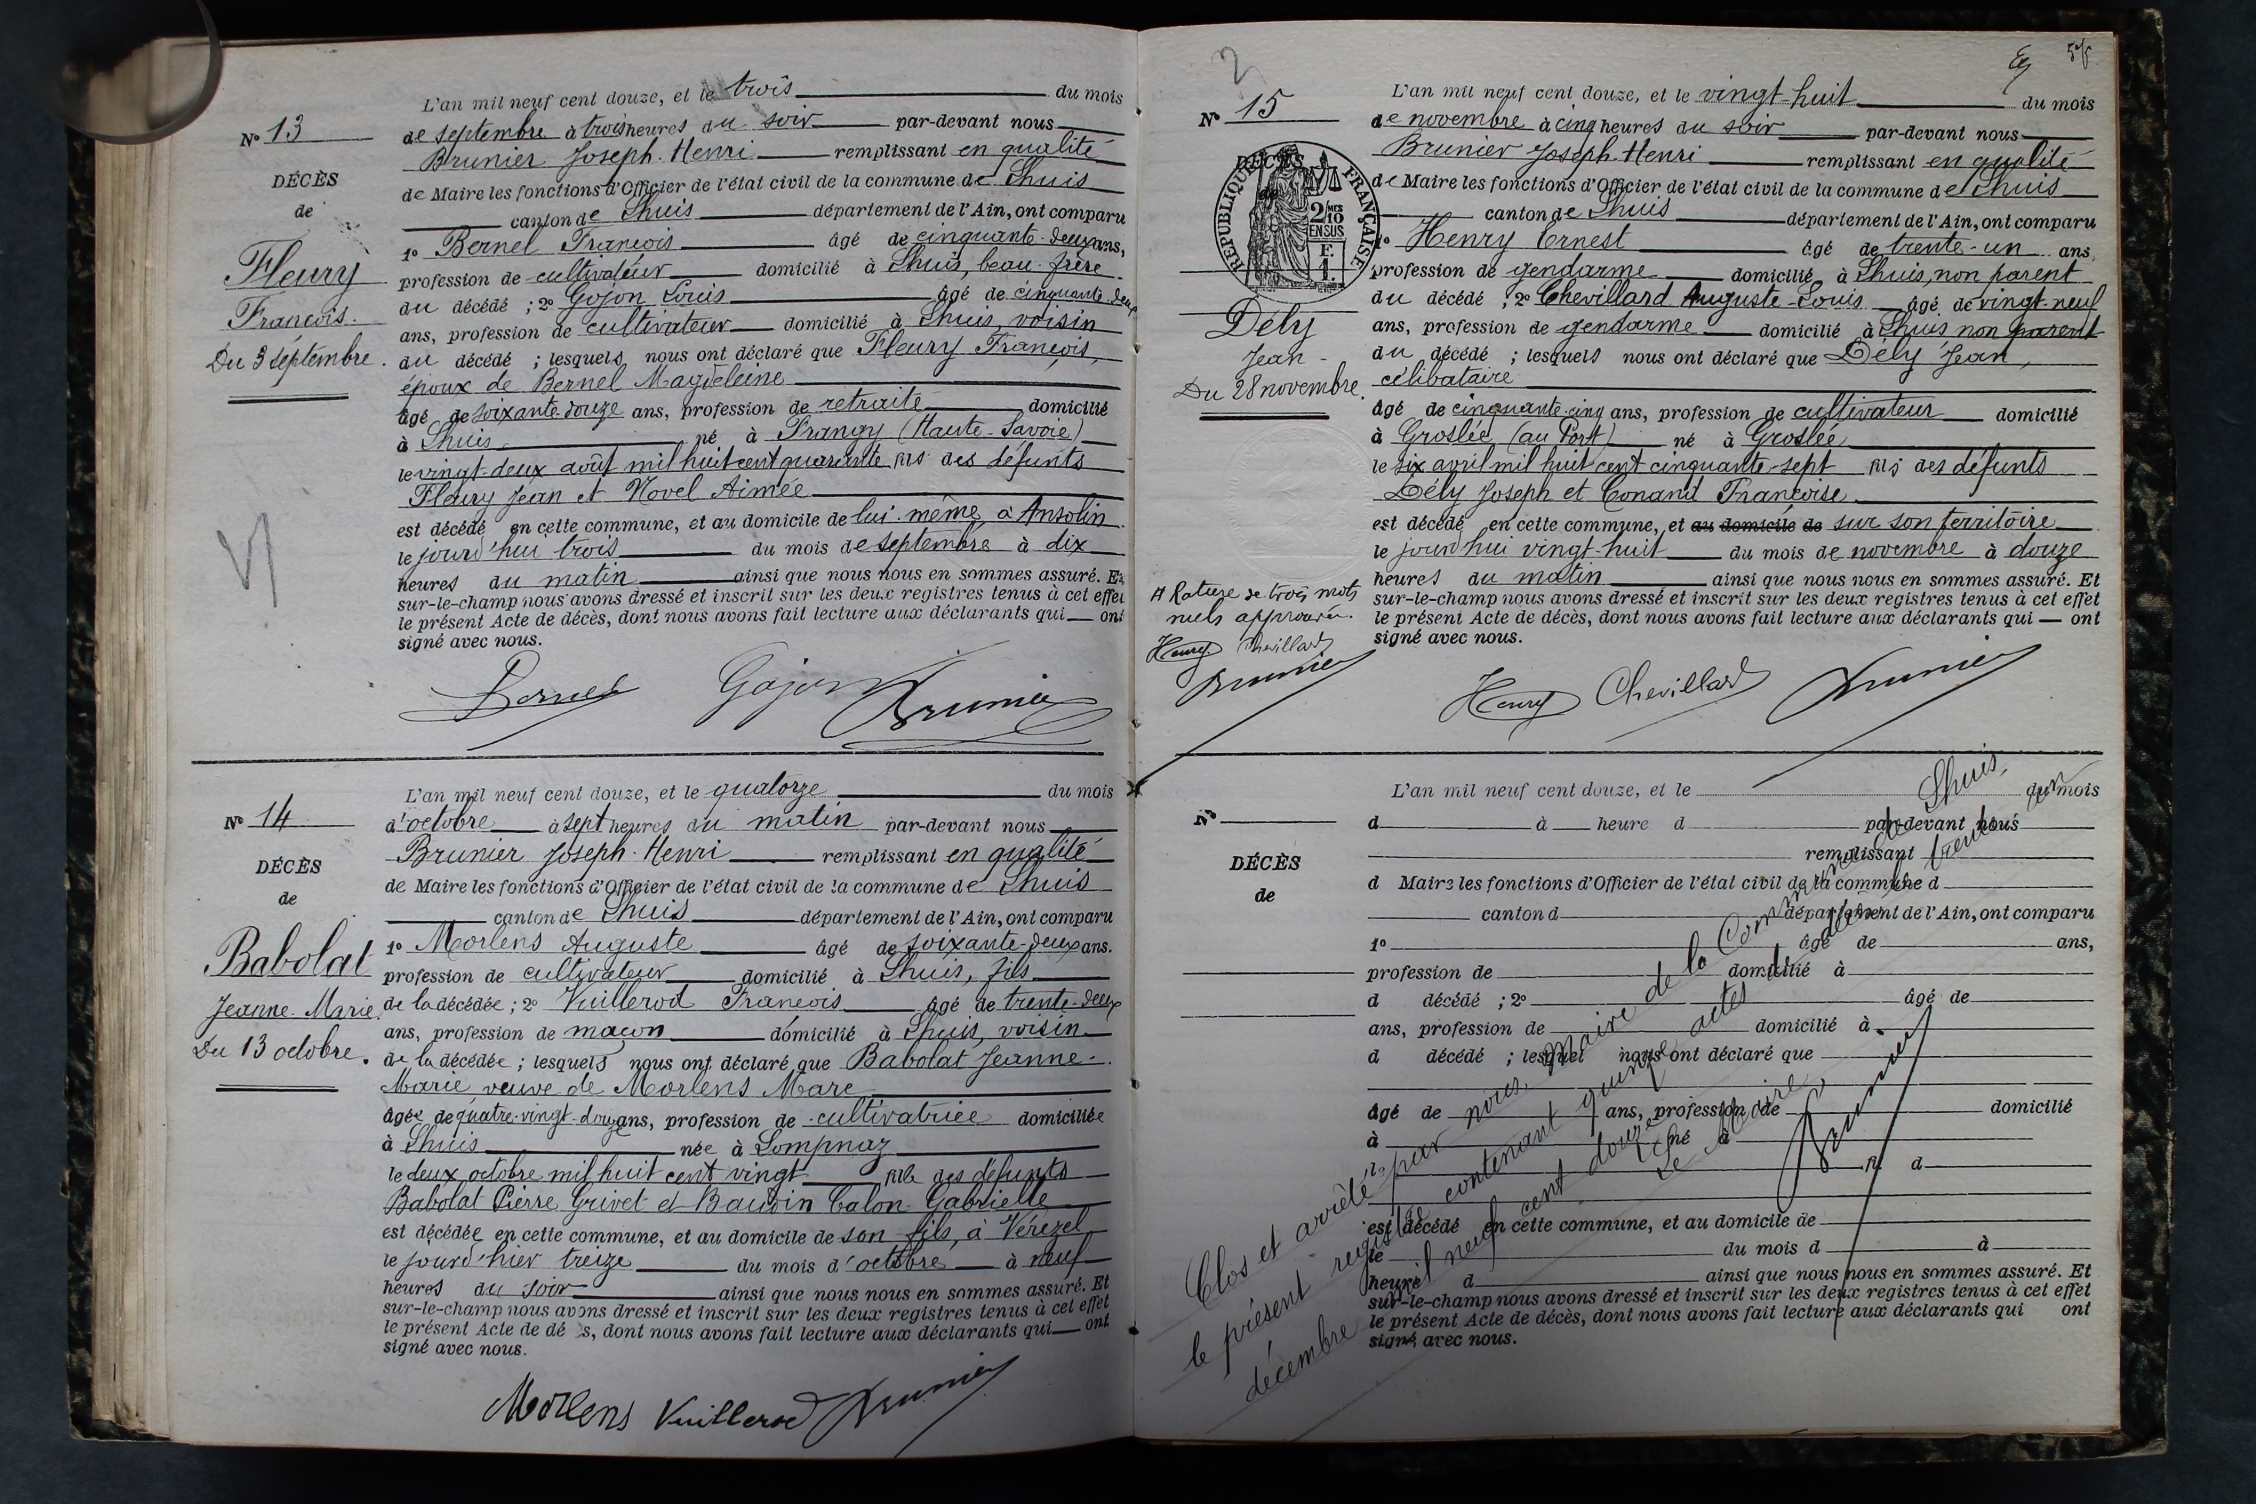 N° 13
DÉCÈS
de
Fleury
François.
Du 3 septembre.
L'an mil neuf cent douze, et le trois du mois
de septembre à trois heures du soir par-devant nous
Brunier Joseph-Henri remplissant en qualité
de Maire les fonctions d'Officier de l'état civil de la commune de Lhuis
canton de Lhuis département de l'Ain, ont comparu
1° Bernel François âgé de cinquante-deux ans,
profession de cultivateur domicilié à Lhuis, beau-frère
du décédé ; 2° Gojon Louis âgé de cinquante-deux
ans, profession de cultivateur domicilié à Lhuis, voisin
du décédé ; lesquels nous ont déclaré que Fleury François,
époux de Bernel Magdeleine
âgé de soixante douze ans, profession de retraité domicilié
à Lhuis né à Frangy (Haute-Savoie)
le vingt-deux août mil huit cent quarante fils des défunts
Fleury Jean et Novel Aimée
est décédé en cette commune, et au domicile de lui-même à Ansolin
le jourd'hui trois du mois de septembre à dix
heures du matin ainsi que nous nous en sommes assuré. Et
sur-le-champ nous avons dressé et inscrit sur les deux registres tenus à cet effet
le présent Acte de décès, dont nous avons fait lecture aux déclarants qui ont
signé avec nous.
Bernel Gojon Brunier
N° 14
DÉCÈS
de
Babolat
Jeanne-Marie.
Du 13 octobre.
L'an mil neuf cent douze, et le quatorze du mois
d'octobre à sept heures du matin par-devant nous
Brunier Joseph-Henri remplissant en qualité
de Maire les fonctions d'Officier de l'état civil de la commune de Lhuis
canton de Lhuis département de l'Ain, ont comparu
1° Morlens Auguste âgé de soixante-deux ans.
profession de cultivateur domicilié à Lhuis, fils
de la décédée ; 2° Vuillerod François âgé de trente-deux
ans, profession de maçon domicilié à Lhuis, voisin
de la décédée ; lesquels nous ont déclaré que Babolat Jeanne-
Marie veuve de Morlens Marc
âgée de quatre-vingt-douze ans, profession de cultivatrice domiciliée
à Lhuis née à Lompnaz
le deux octobre mil huit cent vingt fille des défunts
Babolat Pierre Grivet et Baudin Calon Gabrielle
est décédée en cette commune, et au domicile de son fils, à Vérezel
le jourd'hier treize du mois d'octobre à neuf
heures du soir ainsi que nous nous en sommes assuré. Et
sur-le-champ nous avons dressé et inscrit sur les deux registres tenus à cet effet
le présent Acte de dé s, dont nous avons fait lecture aux déclarants qui ont
signé avec nous.
Morlens Vuillerod Brunier
N° 15
RÉPUBLIQUE FRANÇAISE
2/10 MES
EN SUS
F.
1.
DÉCÈS
Dély
Jean-
Du 28 novembre.
L'an mil neuf cent douze, et le vingt-huit du mois
de novembre à cinq heures du soir par-devant nous
Brunier Joseph-Henri remplissant en qualité
de Maire les fonctions d'Officier de l'état civil de la commune de Lhuis
canton de Lhuis département de l'Ain, ont comparu
1° Henry Ernest âgé de trente-un ans,
profession de gendarme domicilié à Lhuis, non parent
du décédé ; 2° Chevillard Auguste-Louis âgé de vingt-neuf
ans, profession de gendarme domicilié à Lhuis, non parent
du décédé ; lesquels nous ont déclaré que Dély Jean,
célibataire
âgé de cinquante-cinq ans, profession de cultivateur domicilié
à Groslée (au Port) né à Groslée
le six avril mil huit cent cinquante-sept fils des défunts
Dély Joseph et Conand Françoise
est décédé en cette commune, et au domicile de sur son territoire
le jourd'hui vingt-huit du mois de novembre à douze
heures du matin ainsi que nous nous en sommes assuré. Et
sur-le-champ nous avons dressé et inscrit sur les deux registres tenus à cet effet
le présent Acte de décès, dont nous avons fait lecture aux déclarants qui ont
signé avec nous.
Rature de trois mots
nuls approuvée.
Henry Chevillard
Brunier
Henry Chevillard Brunier
N°
DÉCÈS
de
L'an mil neuf cent douze, et le du mois
d à heure d par-devant nous
remplissant
d Maire les fonctions d'Officier de l'état civil de la commune d
canton d département de l'Ain, ont comparu
1° âgé de ans,
profession de domicilié à
d décédé ; 2° âgé de
ans, profession de domicilié à
d décédé ; lesquel nous ont déclaré que
âgé de ans, profession de domicilié
à né à
le fi d
est décédé en cette commune, et au domicile de
le du mois d à
heure d ainsi que nous nous en sommes assuré. Et
sur-le-champ nous avons dressé et inscrit sur les deux registres tenus à cet effet
le présent Acte de décès, dont nous avons fait lecture aux déclarants qui ont
signé avec nous.
Clos et arrêté par nous, Maire de la Commune de Lhuis,
le présent registre contenant quinze actes de décès, le trente un
décembre mil neuf cent douze
Le Maire,
Brunier